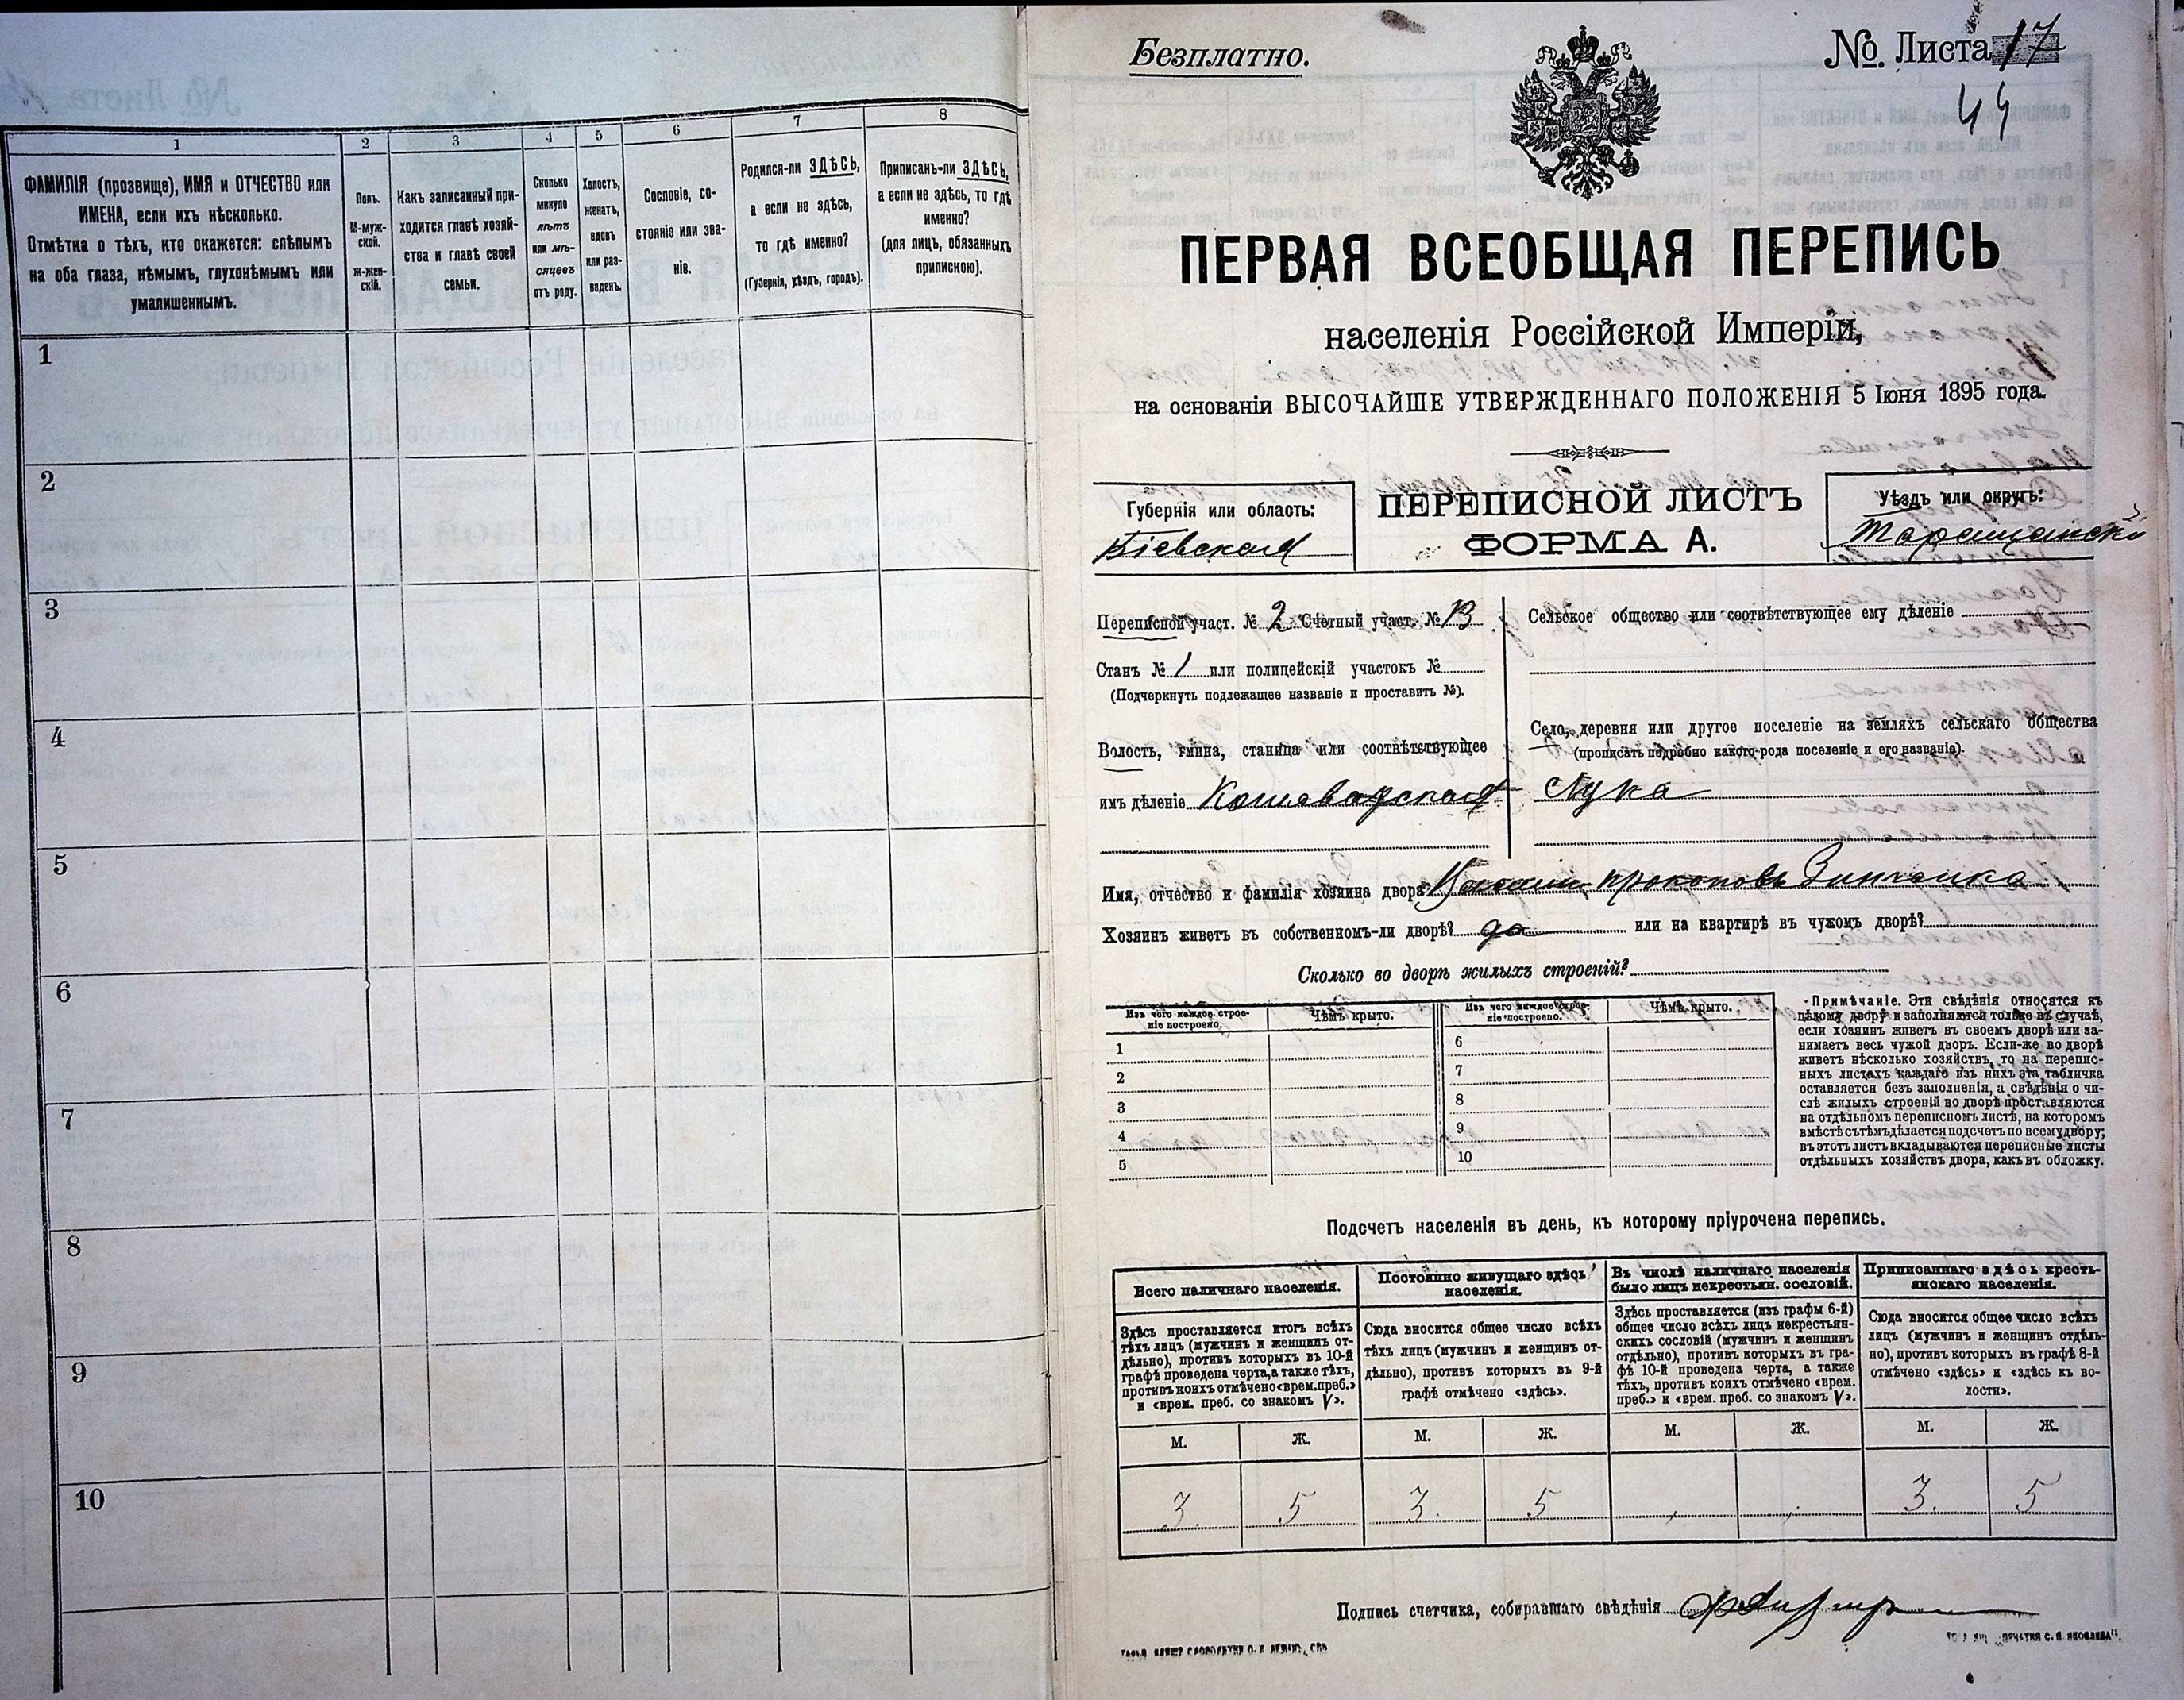 1
2
3
4
5
6
7
8
ФАМИЛІЯ (прозвище), ИМЯ и ОТЧЕСТВО или
ИМЕНА, если ихъ нѣсколько.
Отмѣтка о тѣхъ, кто окажется: слѣпымъ
на оба глаза, нѣмымъ, глухонѣмымъ или
умалишеннымъ.
Полъ.
М-муж-
ской.
Ж-жен-
скій.
Какъ записанный при-
ходится главѣ хозяй-
ства и главѣ своей
семьи.
Сколько
минуло
лѣтъ
или мѣ-
сяцевъ
отъ роду.
Холостъ,
женатъ,
вдовъ
или раз-
веденъ.
Сословіе, со-
стояніе или зва-
ніе.
Родился-ли ЗДѢСЬ,
а если не здѣсь,
то гдѣ именно?
(Губернія, уѣздъ, городъ).
Приписанъ-ли ЗДѢСЬ,
а если не здѣсь, то гдѣ
именно?
(для лицъ, обязанныхъ
припискою).
1
2
3
4
5
6
7
8
9
10
Безплатно.
№ Листа 17
44
ПЕРВАЯ ВСЕОБЩАЯ ПЕРЕПИСЬ
населенія Россійской Имперіи,
на основаніи ВЫСОЧАЙШЕ УТВЕРЖДЕННАГО ПОЛОЖЕНІЯ 5 Іюня 1895 года.
Губернія или область:
Кіевская
ПЕРЕПИСНОЙ ЛИСТЪ
ФОРМА А.
Уѣздъ или округъ:
Таращанскій
Переписной участ. № 2 Счетный участ. № 13
Станъ № 1 или полицейскій участокъ №
(Подчеркнуть подлежащее названіе и проставить №).
Волость, гмина, станица или соотвѣтствующее
имъ дѣленіе Кошеватская
Сельское общество или соотвѣтствующее ему дѣленіе
Село, деревня или другое поселеніе на земляхъ сельскаго общества
(прописать подробно какого рода поселеніе и его названіе).
Лука
Имя, отчество и фамилія хозяина двора Василій Прокоповъ Зинченко
Хозяинъ живетъ въ собственномъ-ли дворѣ? да или на квартирѣ въ чужомъ дворѣ?
Сколько во дворѣ жилыхъ строеній?
Изъ чего каждое строе-
ніе построено.
Чѣмъ крыто.
Изъ чего каждое строе-
ніе построено.
Чѣмъ крыто.
1
2
3
4
5
6
7
8
9
10
Примѣчаніе. Эти свѣдѣнія относятся къ
цѣлому двору и заполняются только въ случаѣ,
если хозяинъ живетъ въ своемъ дворѣ или за-
нимаетъ весь чужой дворъ. Если-же во дворѣ
живетъ нѣсколько хозяйствъ, то на перепис-
ныхъ листахъ каждаго изъ нихъ эта табличка
оставляется безъ заполненія, а свѣдѣнія о чи-
слѣ жилыхъ строеній во дворѣ проставляются
на отдѣльномъ переписномъ листѣ, на которомъ
вмѣстѣ съ тѣмъ дѣлается подсчетъ по всему двору;
въ этотъ листъ вкладываются переписные листы
отдѣльныхъ хозяйствъ двора, какъ въ обложку.
Подсчетъ населенія въ день, къ которому пріурочена перепись.
Всего наличнаго населенія.
Здѣсь проставляется итогъ всѣхъ
тѣхъ лицъ (мужчинъ и женщинъ от-
дѣльно), противъ которыхъ въ 10-й
графѣ проведена черта, а также тѣхъ,
противъ коихъ отмѣчено «врем. преб.»
и «врем. преб. со знакомъ V».
Постоянно живущаго здѣсь
населенія.
Сюда вносится общее число всѣхъ
тѣхъ лицъ (мужчинъ и женщинъ от-
дѣльно), противъ которыхъ въ 9-й
графѣ отмѣчено «здѣсь».
Въ числѣ наличнаго населенія
было лицъ некрестьян. сословій.
Здѣсь проставляется (изъ графы 6-й)
общее число всѣхъ лицъ некрестьян-
скихъ сословій (мужчинъ и женщинъ
отдѣльно), противъ которыхъ въ гра-
фѣ 10-й проведена черта, а также
тѣхъ, противъ коихъ отмѣчено «врем.
преб.» и «врем. преб. со знакомъ V».
Приписаннаго здѣсь кресть-
янскаго населенія.
Сюда вносится общее число всѣхъ
лицъ (мужчинъ и женщинъ отдѣль-
но), противъ которыхъ въ графѣ 8-й
отмѣчено «здѣсь» и «здѣсь къ во-
лости».
М. Ж. М. Ж. М. Ж. М. Ж.
3. 5 3. 5 3. 5
Подпись счетчика, собиравшаго свѣдѣнія